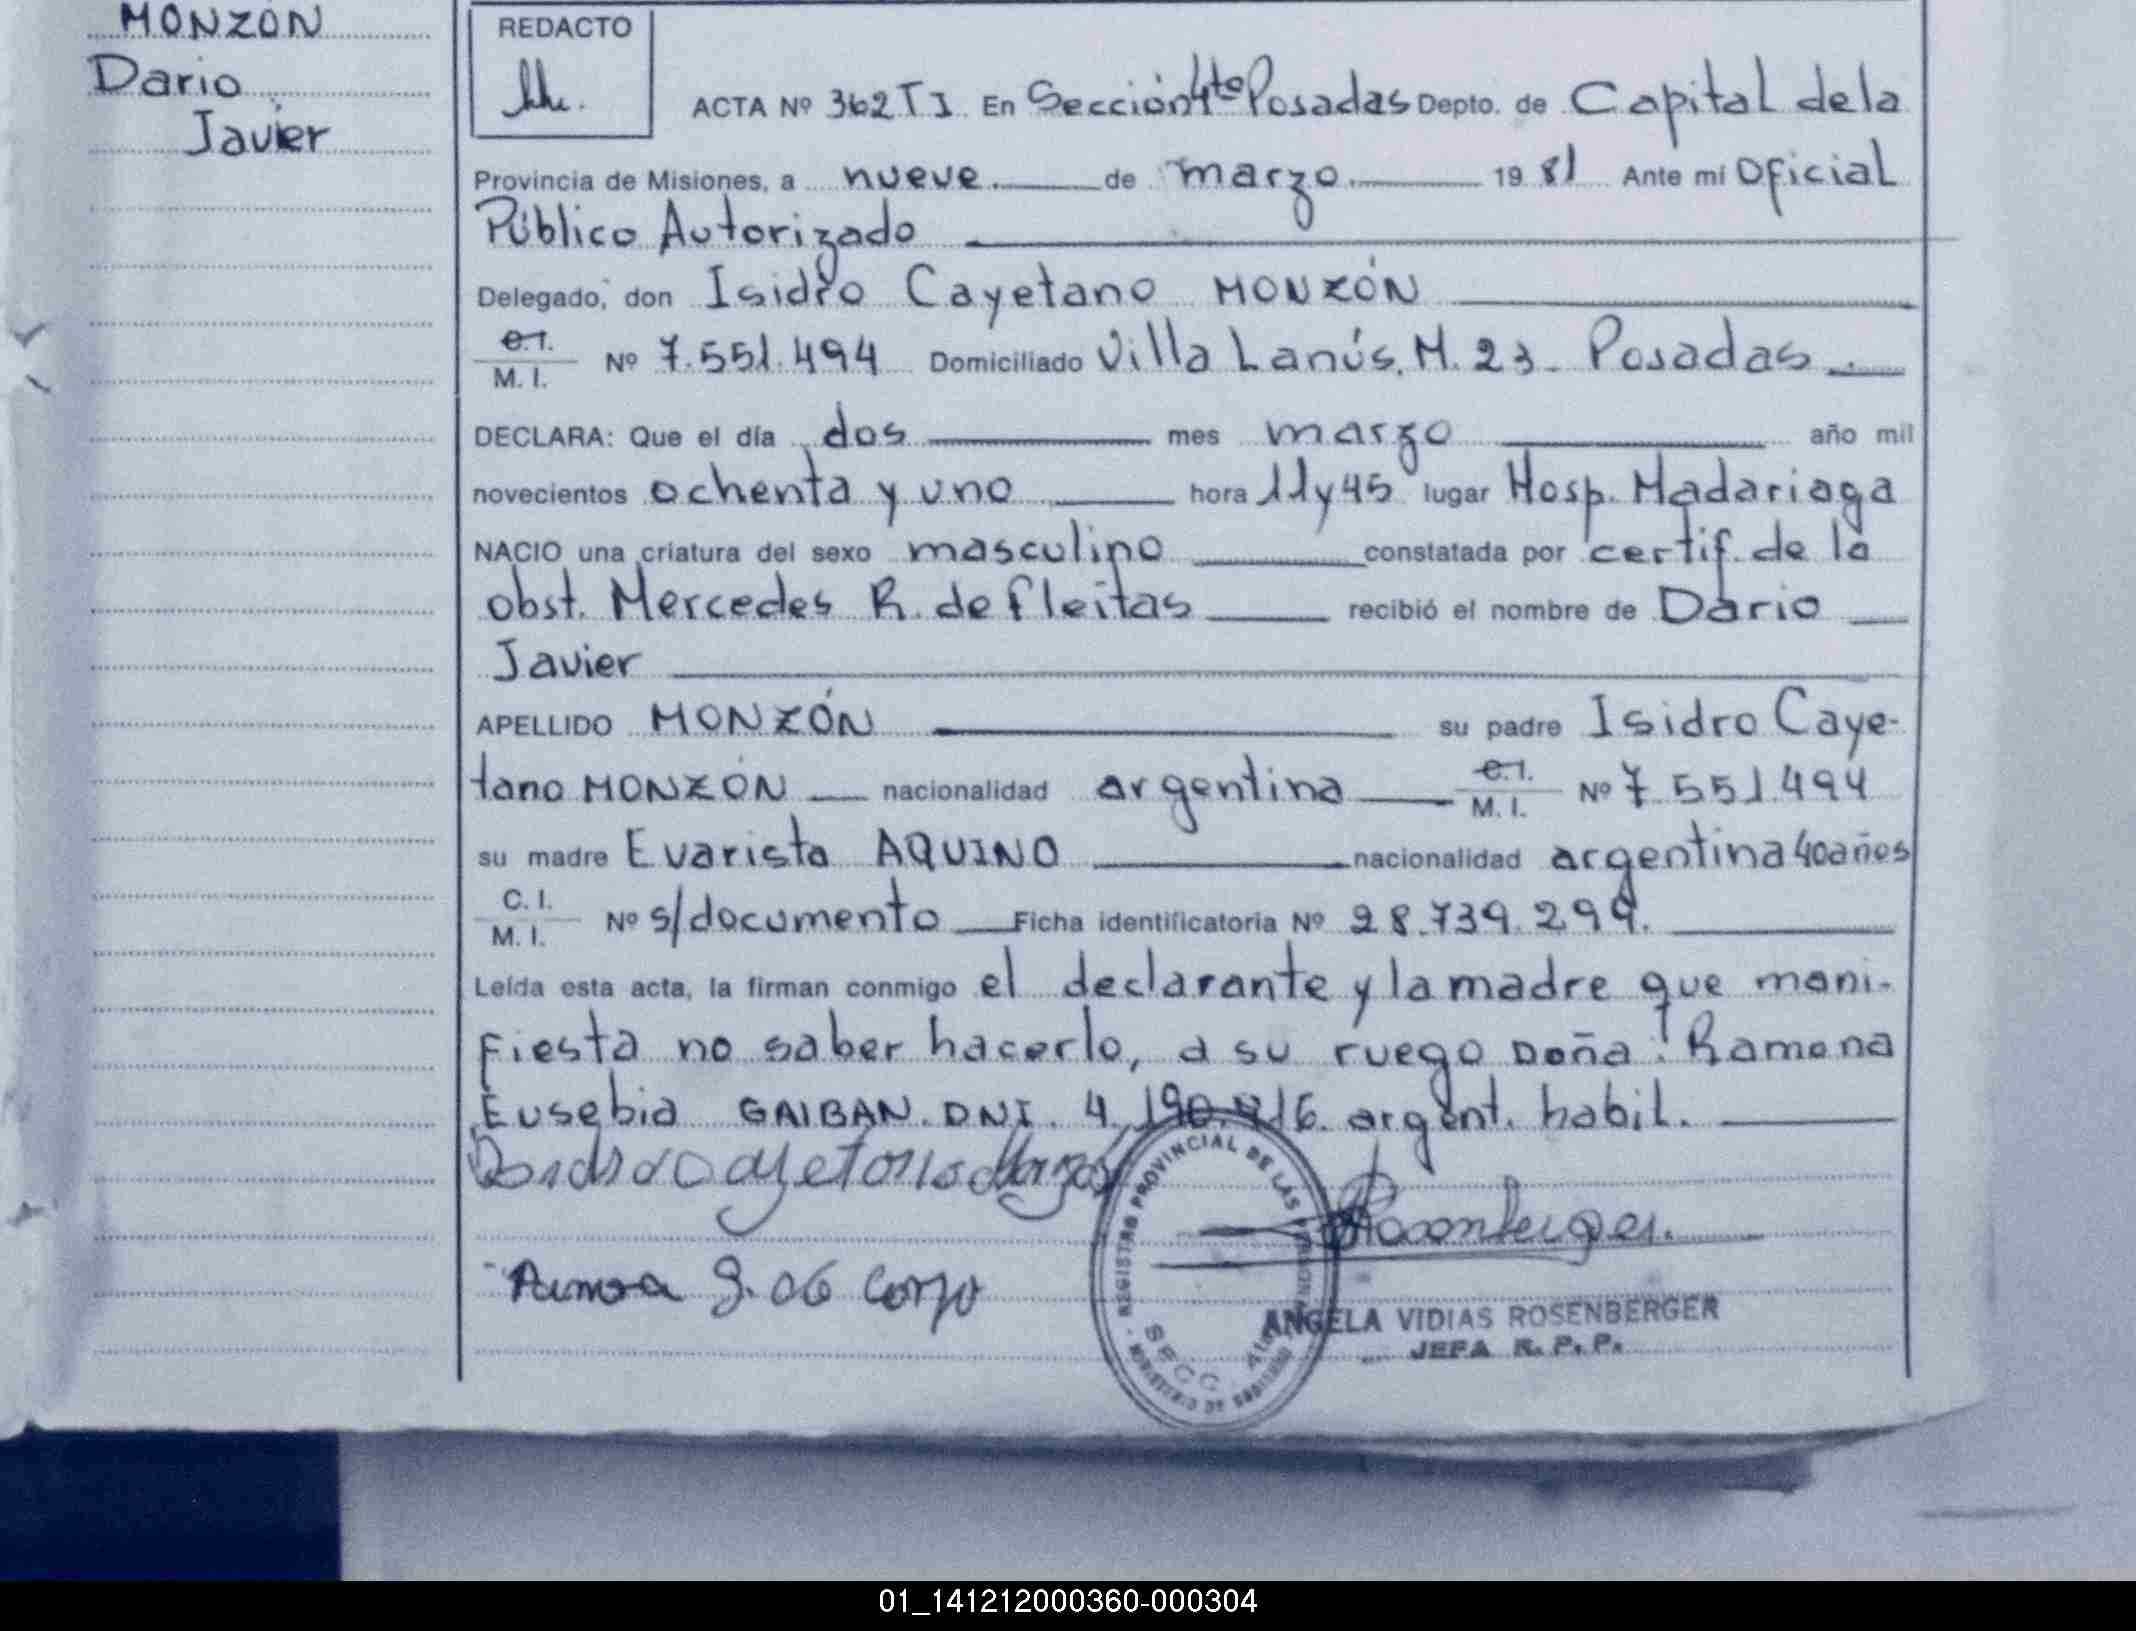 MONZÓN
Dario
Javier
REDACTO
ACTA Nº 362 T I En Sección 4ta Posadas Depto. de Capital de la
Provincia de Misiones, a nueve de marzo 1981 Ante mí Oficial
Público Autorizado
Delegado, don Isidro Cayetano MONZÓN
C.I.
M.I. Nº 7.551.494 Domiciliado Villa Lanús. M. 23. Posadas
DECLARA: Que el día dos mes marzo año mil
novecientos ochenta y uno hora 11 y 45 lugar Hosp. Madariaga
NACIO una criatura del sexo masculino constatada por certif. de la
obst. Mercedes R. de fleitas recibió el nombre de Dario
Javier
APELLIDO MONZÓN su padre Isidro Caye-
tano MONZÓN nacionalidad argentina C.I.
M.I. Nº 7.551.494
su madre Evarista AQUINO nacionalidad argentina 40 años
C.I.
M.I. Nº s/documento Ficha identificatoria Nº 28.739.299.
Leída esta acta, la firman conmigo el declarante y la madre que mani-
fiesta no saber hacerlo, a su ruego Doña: Ramona
Eusebia GAIBAN. DNI. 4.190. argent. habil.
REGISTRO PROVINCIAL DE LAS PERSONAS
SECC. 4ta
MINISTERIO DE GOBIERNO
Rosenberger.
ANGELA VIDIAS ROSENBERGER
JEFA R. P. P.
01_141212000360-000304